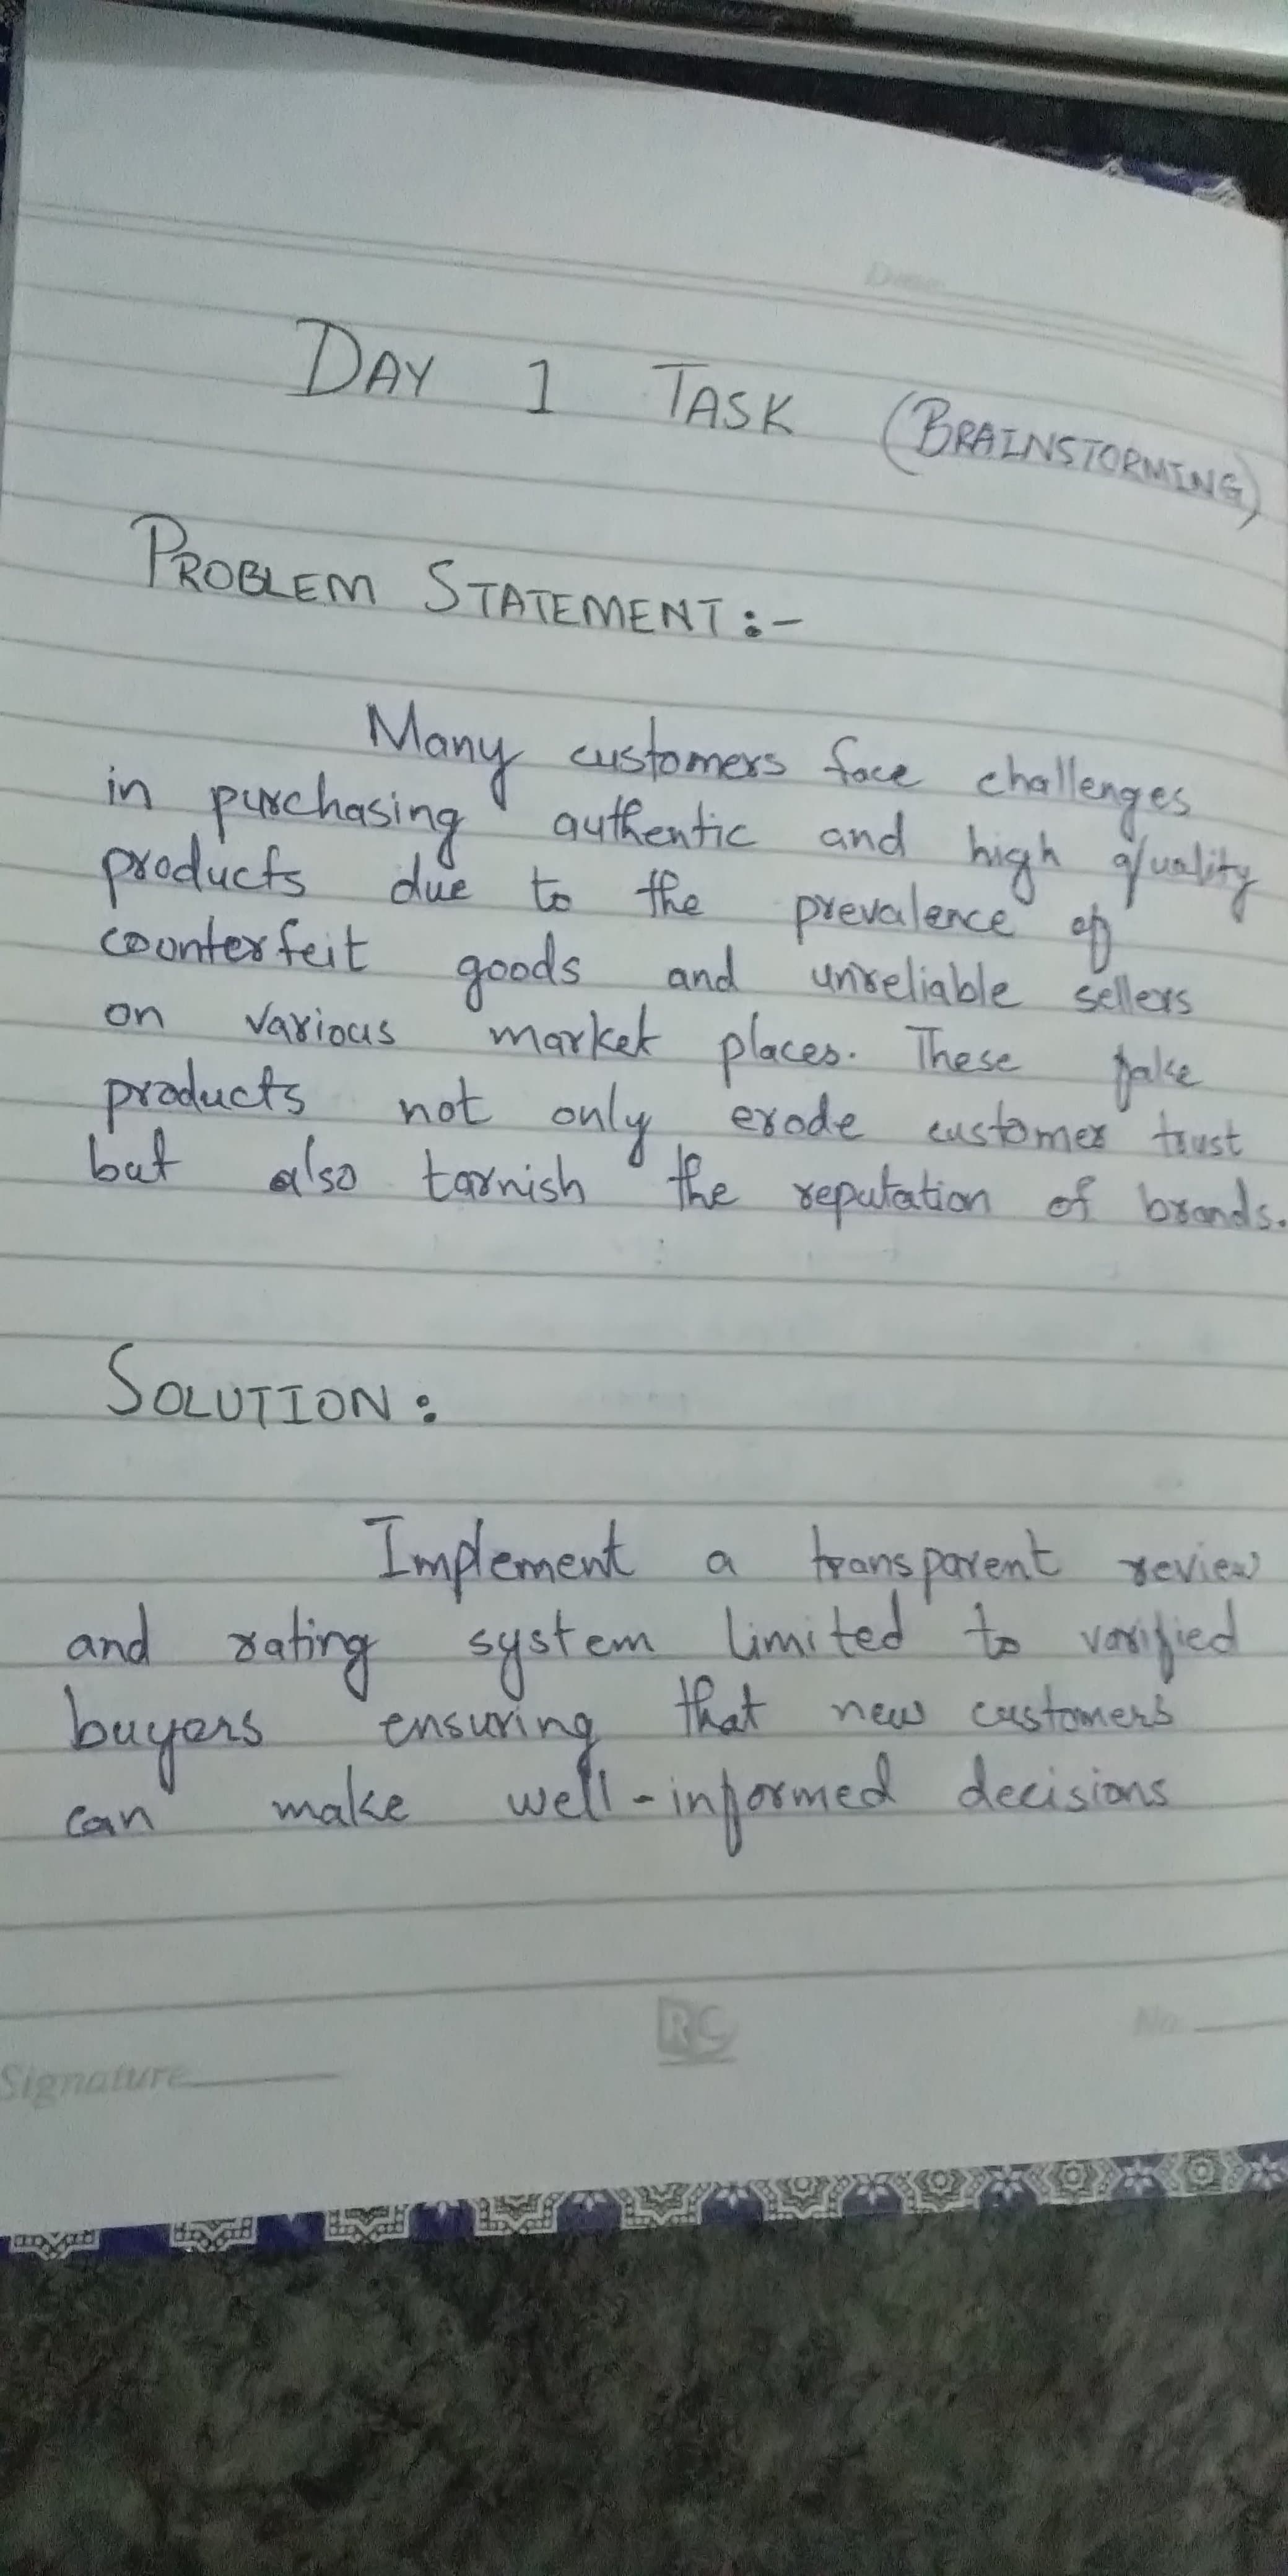 DAY 1 TASK (BRAINSTORMING)
PROBLEM STATEMENT :-
Many customers face challenges
in purchasing authentic and high quality
products due to the prevalence of
counterfeit goods and unreliable sellers
on various market places. These fake
products not only erode customer trust
but also tarnish the reputation of brands.
SOLUTION :
Implement a transparent review
and rating system limited to varified
buyers ensuring that new customers
can make well-informed decisions
RC
No.
Signature